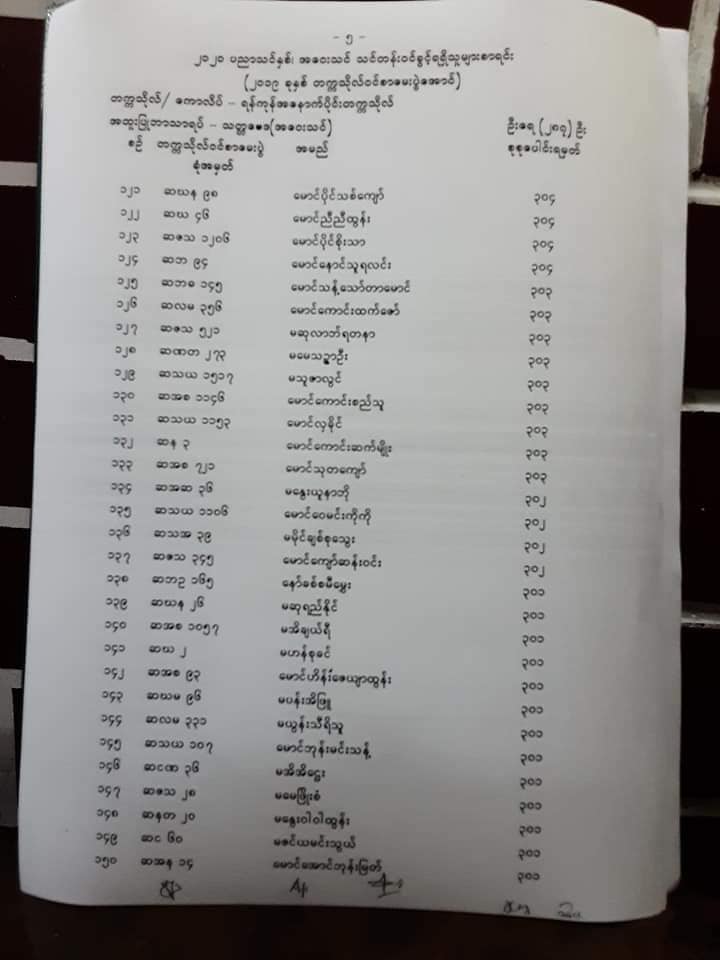 - ၅ -
၂၀၂၀ ပညာသင်နှစ်၊ အဝေးသင် သင်တန်းဝင်ခွင့်ရရှိသူများစာရင်း
(၂၀၁၉ ခုနှစ် တက္ကသိုလ်ဝင်စာမေးပွဲအောင်)
တက္ကသိုလ်/ ကောလိပ် - ရန်ကုန်အနောက်ပိုင်းတက္ကသိုလ်
အထူးပြုဘာသာရပ် - သတ္တဗေဒ(အဝေးသင်) ဦးရေ (၂၈၇) ဦး
စဉ် တက္ကသိုလ်ဝင်စာမေးပွဲ အမည် စုစုပေါင်းရမှတ်
ခုံအမှတ်
၁၂၁ ဆဃန ၉၈ မောင်ပိုင်သစ်ကျော် ၃၀၄
၁၂၂ ဆဃ ၄၆ မောင်ညီညီထွန်း ၃၀၄
၁၂၃ ဆဇသ ၁၂၀၆ မောင်ပိုင်စိုးသာ ၃၀၄
၁၂၄ ဆဘ ၉၄ မောင်နောင်သူရလင်း ၃၀၄
၁၂၅ ဆဘခ ၁၄၅ မောင်သန့်သော်တာမောင် ၃၀၃
၁၂၆ ဆလမ ၃၅၆ မောင်ကောင်းထက်ဇော် ၃၀၃
၁၂၇ ဆဇသ ၅၂၁ မဆုလာဘ်ရတနာ ၃၀၃
၁၂၈ ဆဏတ ၂၇၃ မမေသဥ္ဇာဦး ၃၀၃
၁၂၉ ဆသယ ၁၅၁၇ မသူဇာလွင် ၃၀၃
၁၃၀ ဆအစ ၁၁၄၆ မောင်ကောင်းစည်သူ ၃၀၃
၁၃၁ ဆသယ ၁၁၅၃ မောင်လှနိုင် ၃၀၃
၁၃၂ ဆန ၃ မောင်ကောင်းဆက်မျိုး ၃၀၃
၁၃၃ ဆအစ ၇၂၁ မောင်သုတကျော် ၃၀၃
၁၃၄ ဆအဆ ၃၆ မနွေးယူနာဘို ၃၀၂
၁၃၅ ဆသယ ၁၁၀၆ မောင်ဝေမင်းကိုကို ၃၀၂
၁၃၆ ဆသအ ၃၉ မမိုင်ချစ်စုသွေး ၃၀၂
၁၃၇ ဆဇသ ၃၄၅ မောင်ကျော်ဆန်းဝင်း ၃၀၂
၁၃၈ ဆဘဥ ၁၆၅ နော်ခစ်စမီမွှေး ၃၀၁
၁၃၉ ဆဃန ၂၆ မဆုရည်နိုင် ၃၀၁
၁၄၀ ဆအစ ၁၀၅၇ မအိချယ်ရီ ၃၀၁
၁၄၁ ဆဃ ၂ မဟန်စုခင် ၃၀၁
၁၄၂ ဆအစ ၉၃ မောင်ဟိန်းဇေယျာထွန်း ၃၀၁
၁၄၃ ဆဃမ ၉၆ မပန်းအိဖြူ ၃၀၁
၁၄၄ ဆလမ ၃၃၁ မယွန်းသီရိသူ ၃၀၁
၁၄၅ ဆသယ ၁၀၇ မောင်ဘုန်းမင်းသန့် ၃၀၁
၁၄၆ ဆငဏ ၃၆ မအိအိဌေး ၃၀၁
၁၄၇ ဆဇသ ၂၈ မမေဖြိုးစံ ၃၀၁
၁၄၈ ဆနတ ၂၀ မနွေးဝါဝါထွန်း ၃၀၁
၁၄၉ ဆင ၆၀ မဇင်ယမင်းသွယ် ၃၀၁
၁၅၀ ဆအန ၁၄ မောင်အောင်ဘုန်းမြတ် ၃၀၁